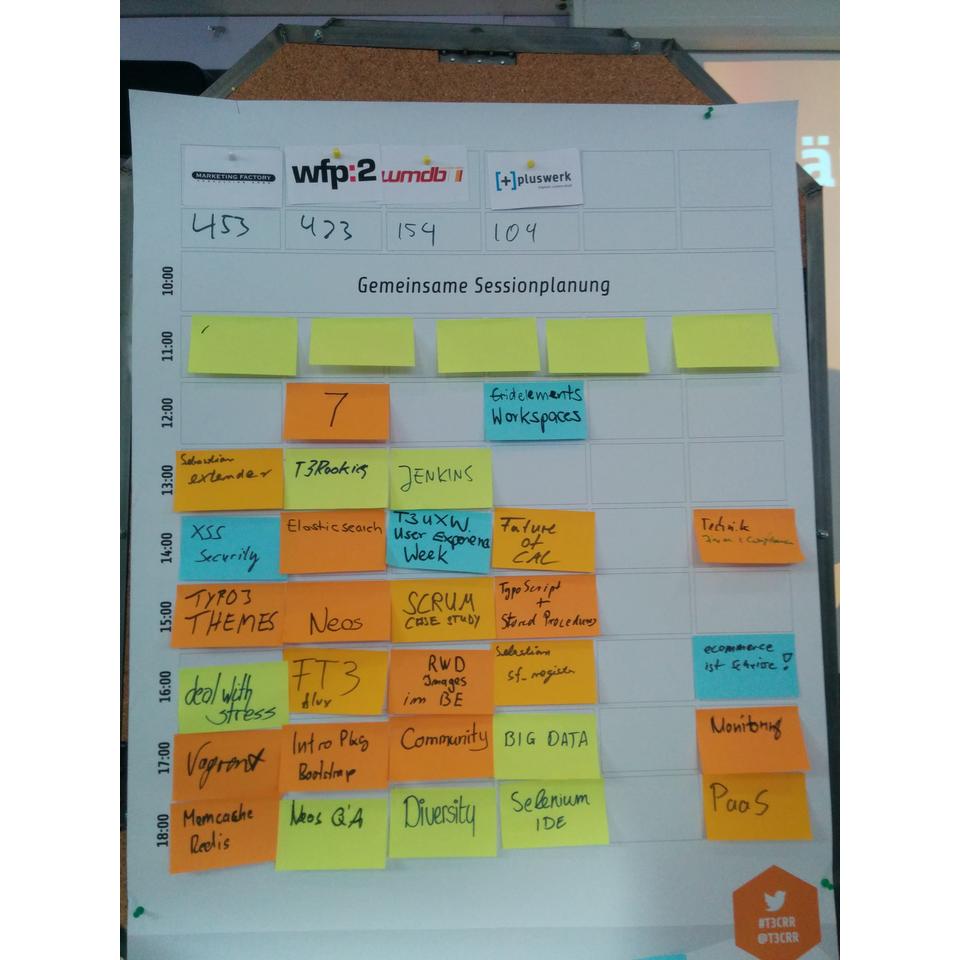 ä
MARKETING FACTORY
wfp:2
wmdb
[+]pluswerk
453
423
154
104
10:00
Gemeinsame Sessionplanung
11:00
12:00
7
Gridelements
Workspaces
13:00
Sebastian
extender
T3Rookies
JENKINS
14:00
XSS
Security
Elasticsearch
T3UXW.
User Experience
Week
Future
of
CAL
Technik
15:00
TYPO3
THEMES
Neos
SCRUM
CASE STUDY
TypoScript
+
Stored Procedures
16:00
deal with
stress
FT3
flux
RWD
Images
im BE
Sebastian
sf_register
ecommerce
ist
17:00
Vagrant
Intro Pkg
Bootstrap
Community
BIG DATA
Monitoring
18:00
Memcache
Redis
Neos Q'A
Diversity
Selenium
IDE
PaaS
#T3CRR
@T3CRR